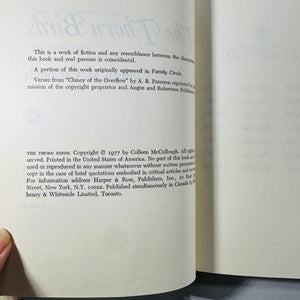 The Thorn Birds
This is a work of fiction and any resemblance between the characters
this book and real persons is coincidental.
A portion of this work originally appeared in Family Circle.
Verses from "Clancy of the Overflow" by A. B. Paterson reprinted by
mission of the copyright proprietor and Angus and Robertson Publishers.
THE THORN BIRDS. Copyright © 1977 by Colleen McCullough. All rights
served. Printed in the United States of America. No part of this book
used or reproduced in any manner whatsoever without written permission
cept in the case of brief quotations embodied in critical articles and
For information address Harper & Row, Publishers, Inc., 10 East
Street, New York, N.Y. 10022. Published simultaneously in Canada by
henry & Whiteside Limited, Toronto.